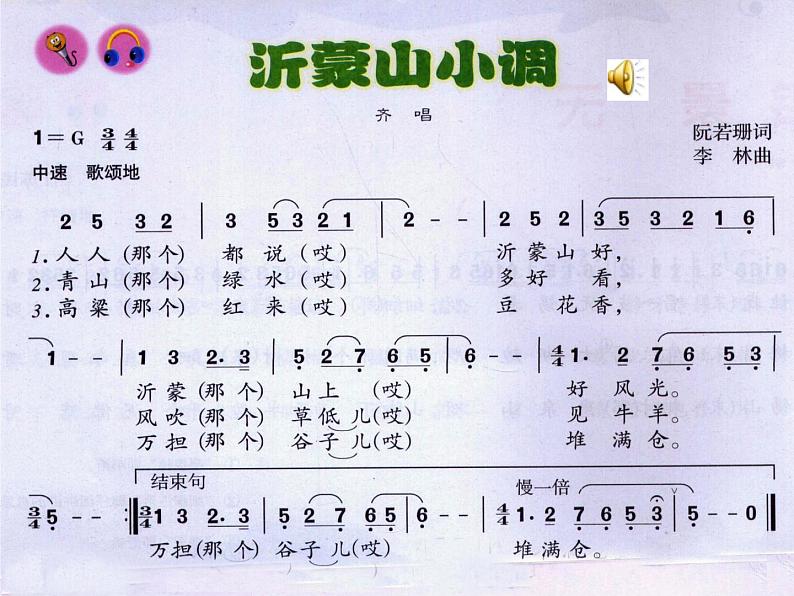 沂蒙山小调
齐 唱
1=G 3/4 4/4
阮若珊词
中速 歌颂地
李 林曲
2 5 3 2 | 3 5 3 2 1 | 2 - - | 2 5 2 | 3 5 3 2 1 6 |
1.人 人 (那 个) 都 说 (哎) 沂 蒙 山 好,
2.青 山 (那 个) 绿 水 (哎) 多 好 看,
3.高 粱 (那 个) 红 来 (哎) 豆 花 香,
1 - - | 1 3 2. 3 | 5 2 7 6 5 | 6 - - | 4/4 1. 2 7 6 5 3 |
沂 蒙 (那 个) 山 上 (哎) 好 风 光。
风 吹 (那 个) 草 低 儿 (哎) 见 牛 羊。
万 担 (那 个) 谷 子 儿 (哎) 堆 满 仓。
结束句 慢一倍
3/4 5 - - :‖ 3/4 1 3 2. 3 | 5 2 7 6 5 | 6 - - | 4/4 1. 2 7 6 5 3 | 5 - - 0 ‖
万 担 (那 个) 谷 子 儿 (哎) 堆 满 仓。